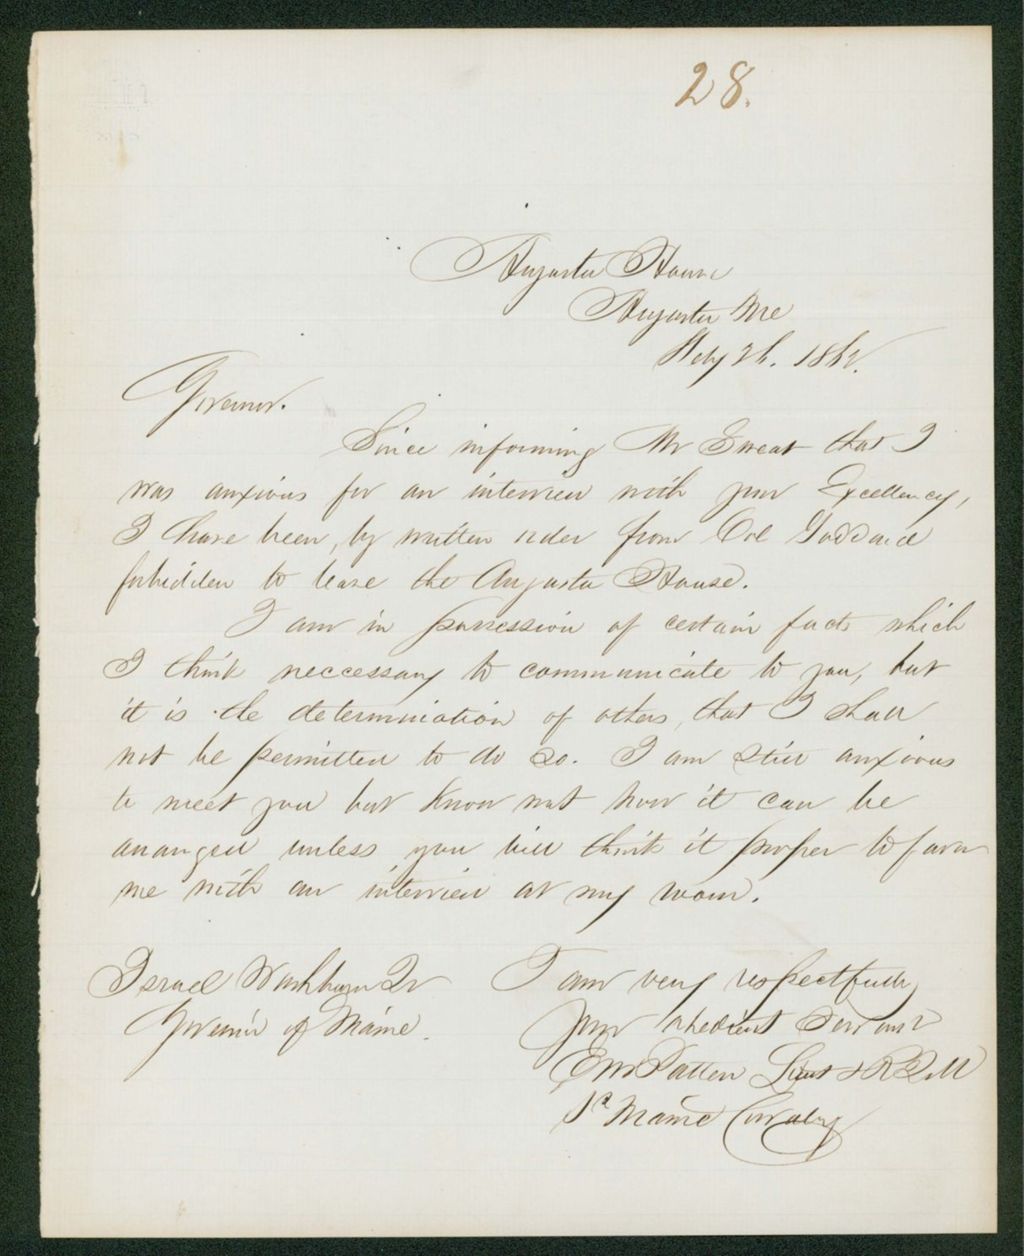 28.
Augusta House
Augusta Me
Feby 26. 1862.
Governor.
Since informing Mr Sweat that I
was anxious for an interview with your Excellency,
I have been, by written order from Col Goddard
forbidden to leave the Augusta House.
I am in possession of certain facts which
I think neccessary to communicate to you, but
it is the determination of others, that I shall
not be permitted to do so. I am still anxious
to meet you but know not how it can be
arranged unless you will think it proper to favor
me with an interview at my room.
Israel Washburn Jr
Governor of Maine.
I am very respectfully
Your obedient Servant
E M Patten Lieut & R Q M
1st Maine Cavalry